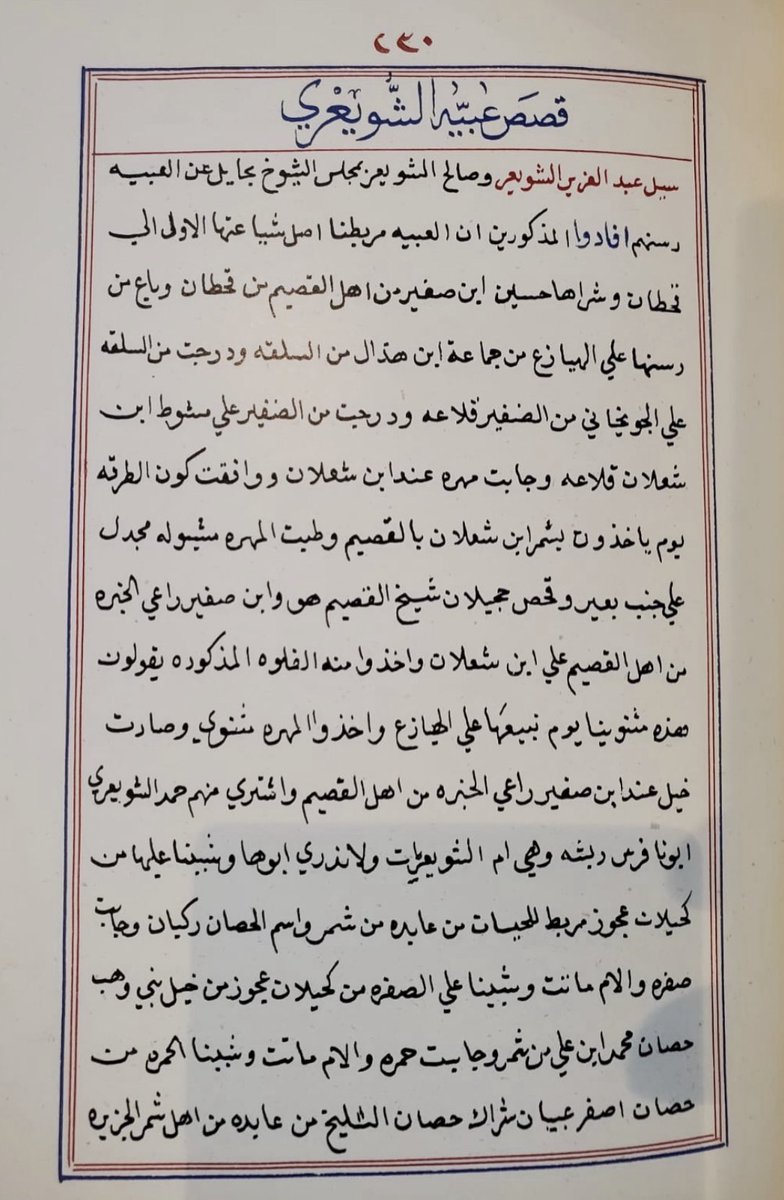 ٢٣٠
قصص عبيّه الشّويعري
سيل عبد العزيز الشويعر وصالح الشويعر بمجلس الشيوخ بحايل عن العبيه
رسنهم افادوا المذكورين ان العبيه مربطنا اصل شياعتها الاولى الي
قحطان وشراها حسين ابن صغير من اهل القصيم من قحطان وباع من
رسنها علي الهيازع من جماعة ابن هذال من السلقه ودرجت من السلقه
علي الجونخاني من الضفير قلاعه ودرجت من الضفير علي مشوط ابن
شعلان قلاعه وجابت مهره عند ابن شعلان ووافقت كون الطرقه
يوم ياخذون بشمر ابن شعلان بالقصيم وطبت المهره مشيوله مجدل
علي جنب بعير وقحص حجيلان شيخ القصيم هو وابن صغير راعي الخبره
من اهل القصيم علي ابن شعلان واخذوا منه الفلوه المذكوره يقولون
هذه مثنوينا يوم نبيعها علي الهيازع واخذوا المهره مثنوي وصارت
خيل عند ابن صغير راعي الخبره من اهل القصيم واشتري منهم حمد الشويعري
ابونا فرس ربشه وهي ام الشويعريات ولاندري ابوها وشبينا عليها من
كحيلان عجوز مربط للحيسات من عابده من شمر واسم الحصان ركبان وجابت
صفره والام ماتت وشبينا علي الصفره من كحيلان عجوز من خيل بني وهب
حصان محمد ابن علي من شمر وجابت حمره والام ماتت وشبينا الحمره من
حصان اصفر عبيان شراك حصان الثليخ من عابده من اهل شمر الجزيره